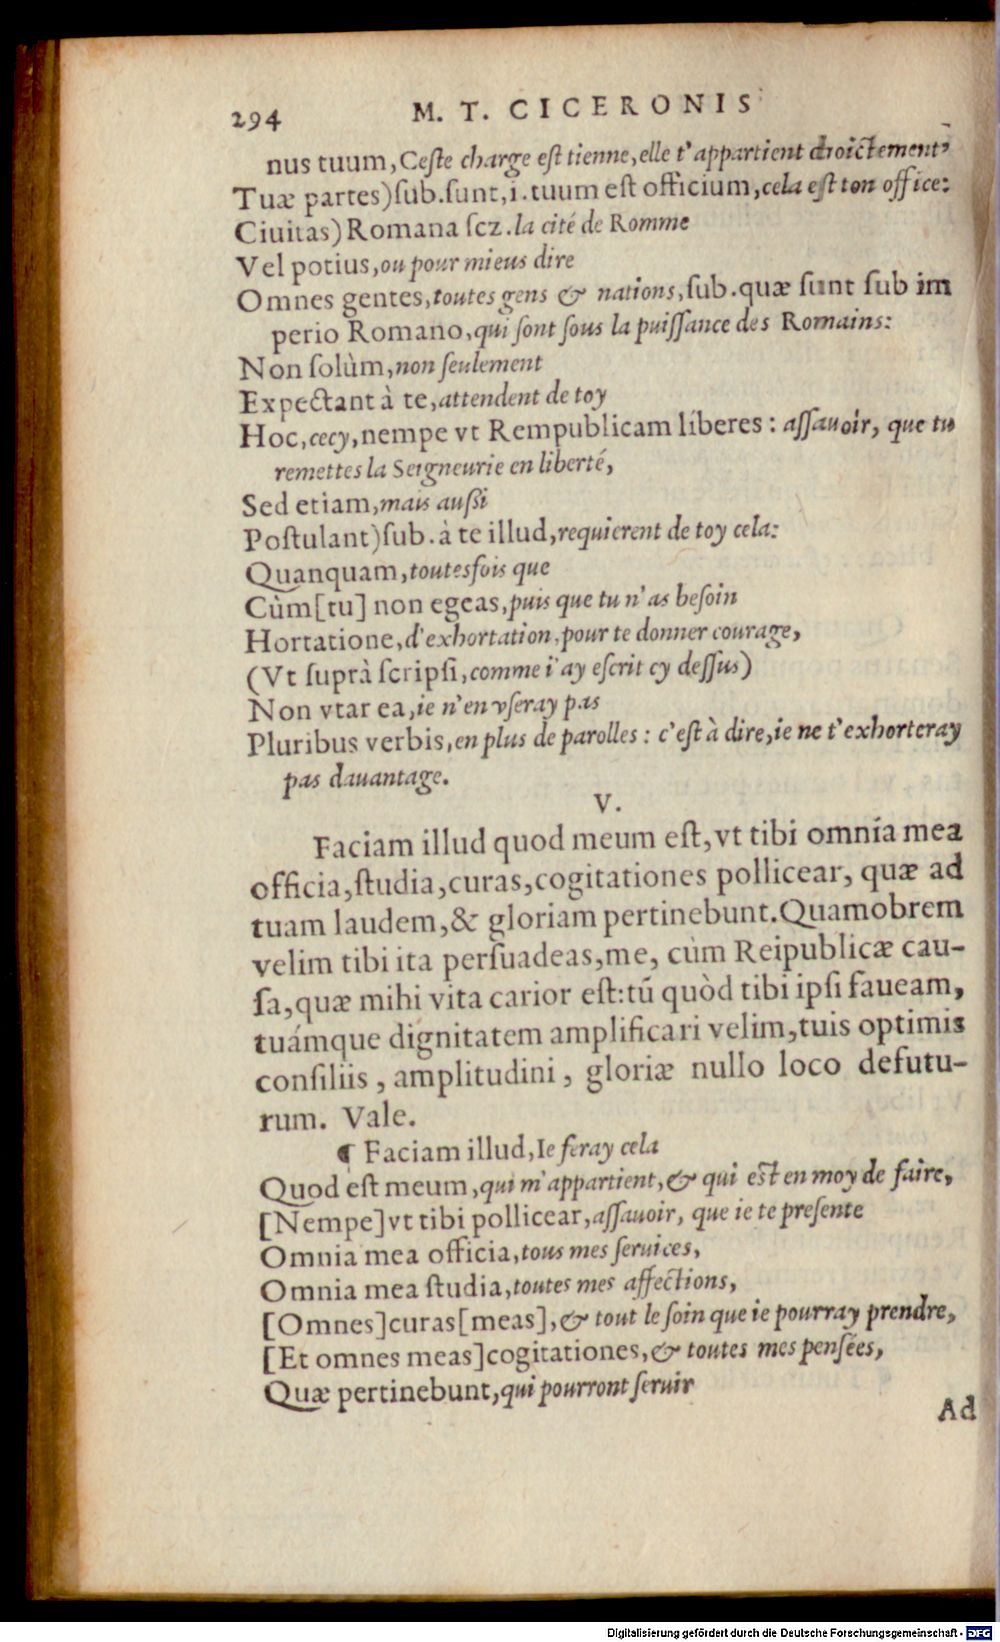 294 M. T. CICERONIS
nus tuum, Ceſte charge eſt tienne, elle t'appartient droictement,
Tuæ partes) ſub. ſunt, i. tuum eſt officium, cela eſt ton office:
Ciuitas) Romana ſcz. la cité de Romme
Vel potius, ou pour mieus dire
Omnes gentes, toutes gens & nations, ſub. quæ ſunt ſub im
perio Romano, qui ſont ſous la puiſſance des Romains:
Non ſolùm, non ſeulement
Expectant à te, attendent de toy
Hoc, cecy, nempe vt Rempublicam liberes: aſſauoir, que tu
remettes la Seigneurie en liberté,
Sed etiam, mais außi
Poſtulant) ſub. à te illud, requierent de toy cela:
Quanquam, toutesfois que
Cùm [tu] non egeas, puis que tu n'as beſoin
Hortatione, d'exhortation, pour te donner courage,
(Vt ſuprà ſcripſi, comme i'ay eſcrit cy deſſus)
Non vtar ea, ie n'en vſeray pas
Pluribus verbis, en plus de parolles: c'eſt à dire, ie ne t'exhorteray
pas dauantage.
V.
Faciam illud quod meum eſt, vt tibi omnia mea
officia, ſtudia, curas, cogitationes pollicear, quæ ad
tuam laudem, & gloriam pertinebunt. Quamobrem
velim tibi ita perſuadeas, me, cùm Reipublicæ cau-
ſa, quæ mihi vita carior eſt: tū quòd tibi ipſi faueam,
tuámque dignitatem amplificari velim, tuis optimis
conſiliis, amplitudini, gloriæ nullo loco defutu-
rum. Vale.
¶ Faciam illud, Ie feray cela
Quod eſt meum, qui m'appartient, & qui eſt en moy de faire,
[Nempe] vt tibi pollicear, aſſauoir, que ie te preſente
Omnia mea officia, tous mes ſeruices,
Omnia mea ſtudia, toutes mes affections,
[Omnes] curas [meas], & tout le ſoin que ie pourray prendre,
[Et omnes meas] cogitationes, & toutes mes penſées,
Quæ pertinebunt, qui pourront ſeruir
Ad
Digitalisierung gefördert durch die Deutsche Forschungsgemeinschaft - DFG